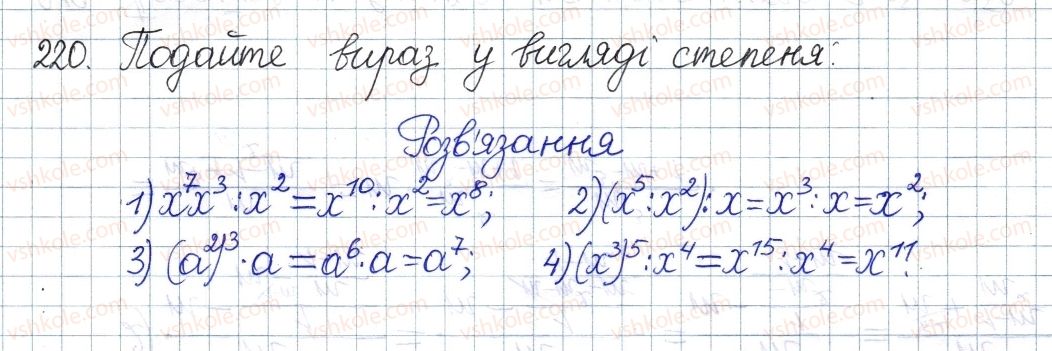 220. Подайте вираз у вигляді степеня:
Розв'язання
1) x⁷x³ : x² = x¹⁰ : x² = x⁸; 2) (x⁵ : x²) : x = x³ : x = x²;
3) (a²)³ · a = a⁶ · a = a⁷; 4) (x³)⁵ : x⁴ = x¹⁵ : x⁴ = x¹¹.